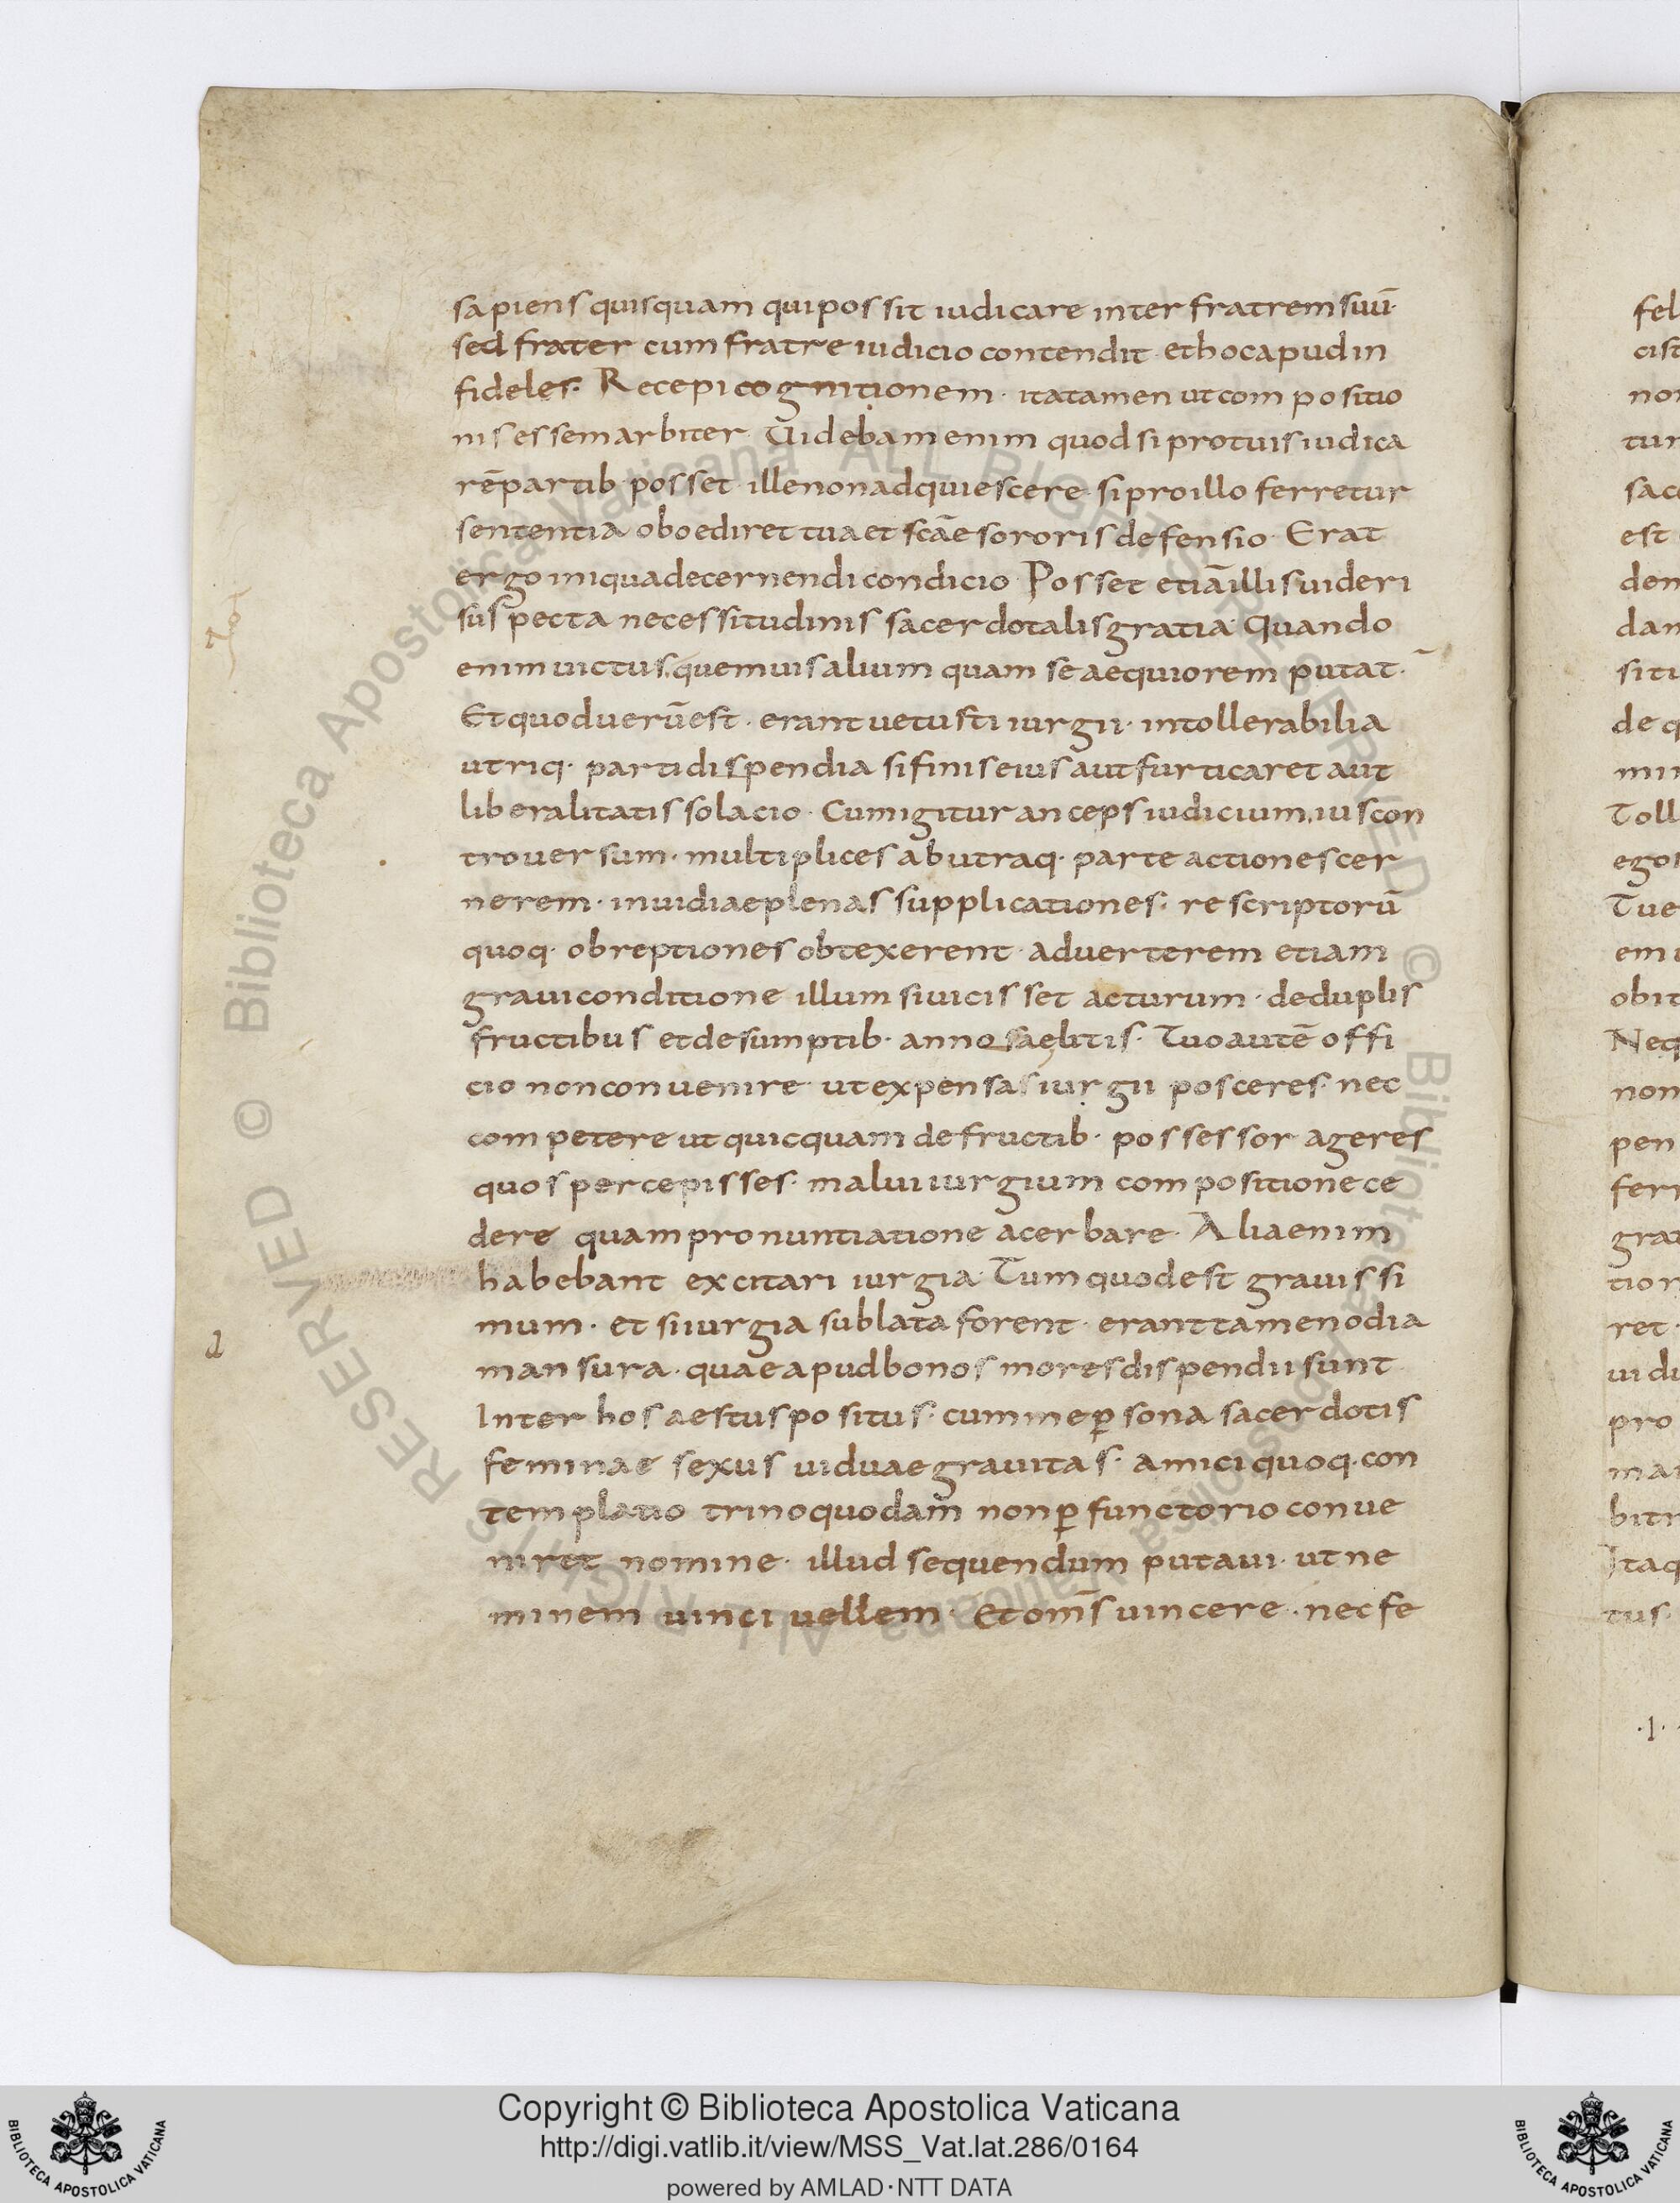 sapiens quisquam qui possit iudicare inter fratrem suū·
sed frater cum fratre iudicio contendit· et hoc apud in
fideles· Recepi cognitionem· ita tamen ut compositio
nis essem arbiter· Uidebam enim quod si pro tuis iudica
rē partib· posset ille non adquiescere· si pro illo ferretur
sententia oboediret tua et scāe sororis defensio· Erat
ergo iniqua decernendi condicio· Posset etiā illis uideri
suspecta necessitudinis sacerdotalis gratia· Quando
enim uictus, quemuis alium quam se aequiorem putat·
Et quod uerū est· erant uetusti iurgii· intollerabilia
utriq· parti dispendia si finis eius aut furticaret aut
liberalitatis solacio· Cum igitur anceps iudicium, ius con
trouersum· multiplices ab utraq· parte actiones cer
nerem· inuidiae plenas supplicationes· rescriptorū
quoq· obreptiones obtexerent· aduerterem etiam
graui conditione illum si uicisset acturum· de duplis
fructibus et de sumptib· annosae litis· Tuo autē offi
cio non conuenire· ut expensas iurgii posceres· nec
competere ut quicquam de fructib· possessor ageres
quos percepisses· malui iurgium compositione ce
dere quam pronuntiatione acerbare· Alia enim
habebant excitari iurgia· Tum quod est grauissi
mum· et si iurgia sublata forent· erant tamen odia
mansura· quae apud bonos mores dispendii sunt
Inter hos aestus positus· cum in ꝑsona sacerdotis
feminae sexus uiduae grauitas· amici quoq· con
templatio trino quodam non ꝑfunctorio conue
niret nomine· illud sequendum putaui· ut ne
minem uinci uellem· Et om̄s uincere· nec fe
fel
cist
non
tur
sace
est
den
dam
situ
de q
min
Toll
egor
Tue
em
obit
Neq
non
pen
ferr
grat
tion
ret·
uidu
pro
mat
bitr
Itaq
tus·
·I·
d
© Biblioteca Apostolica Vaticana ALL RIGHTS RESERVED © Biblioteca Apostolica Vaticana ALL RIGHTS RESERVED
Copyright © Biblioteca Apostolica Vaticana
http://digi.vatlib.it/view/MSS_Vat.lat.286/0164
powered by AMLAD·NTT DATA
BIBLIOTECA APOSTOLICA VATICANA
BIBLIOTECA APOSTOLICA VATICANA